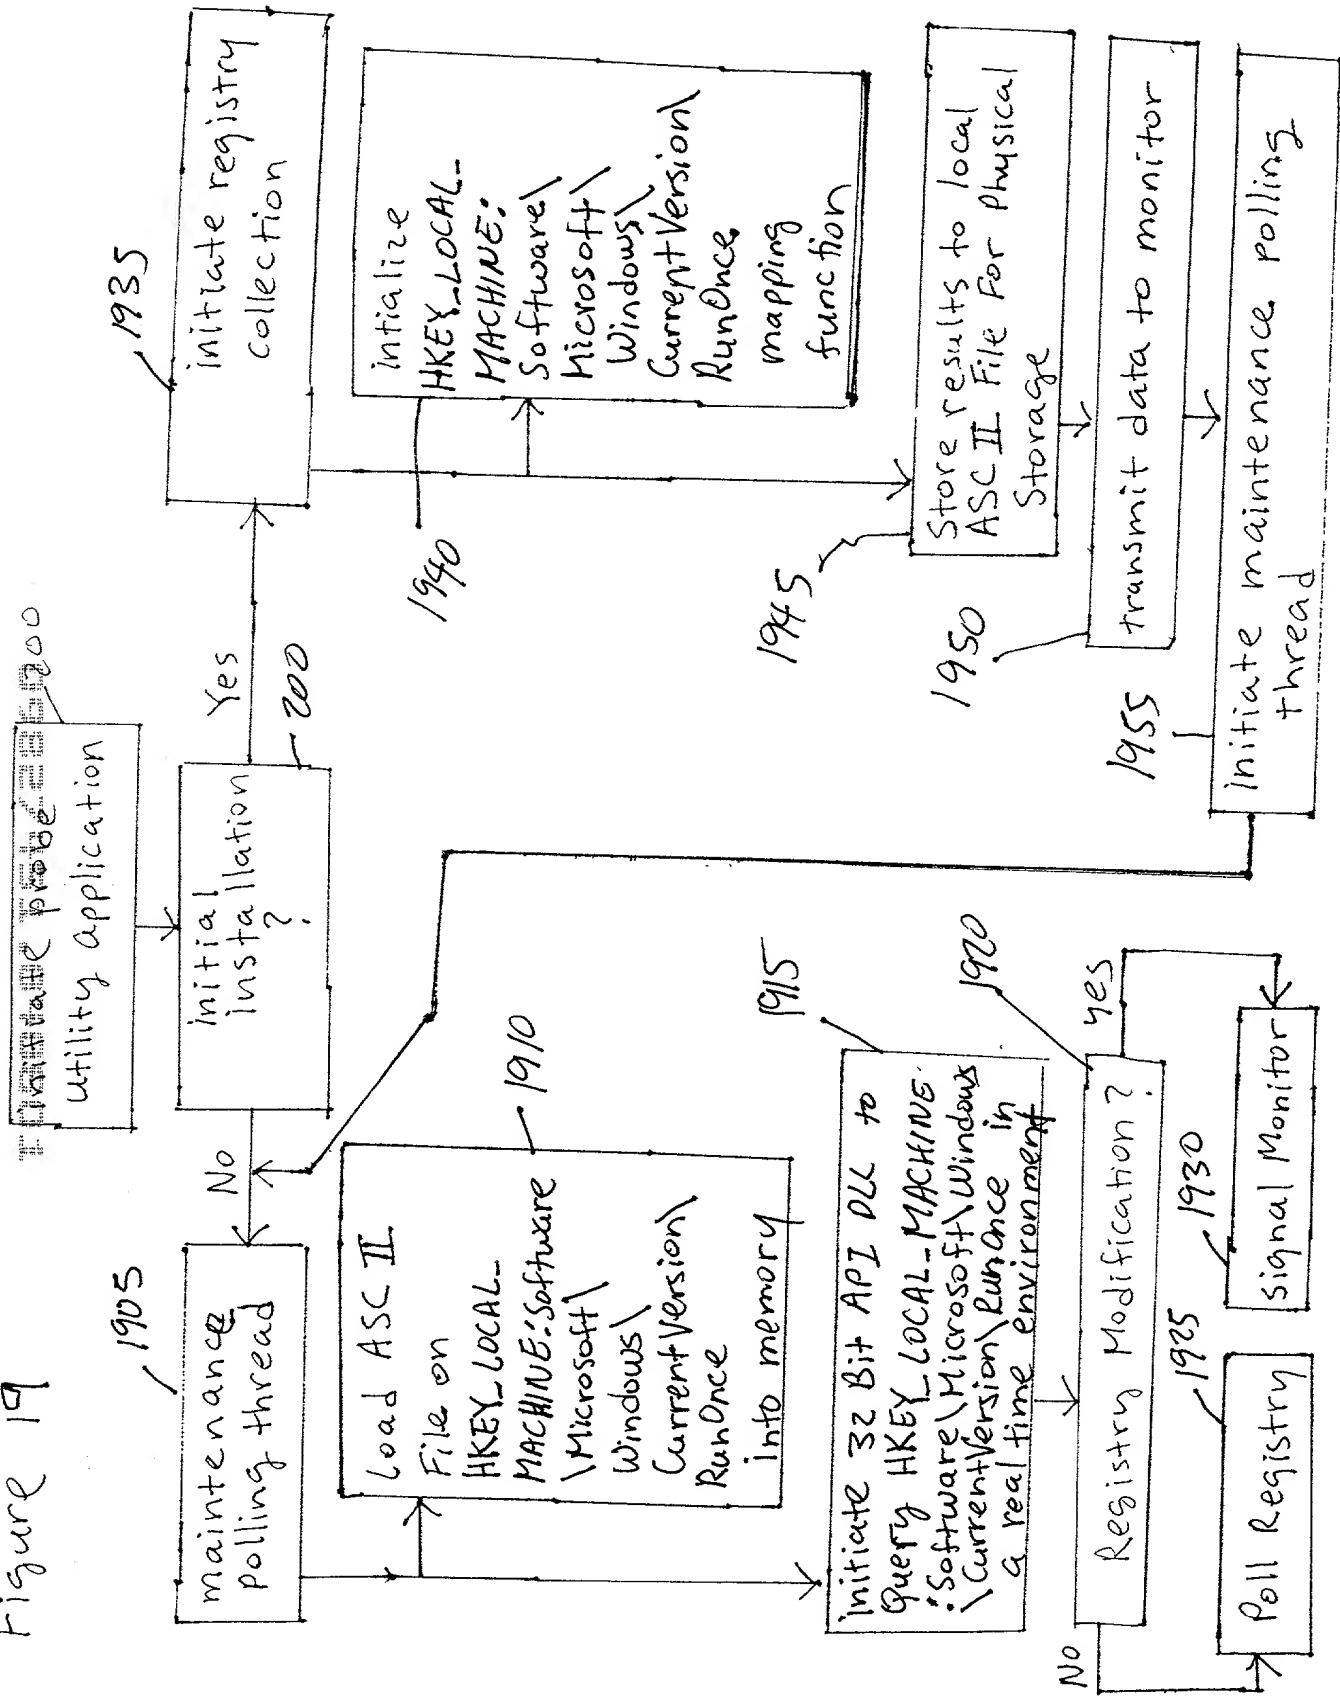 Figure 19
initiate probe
utility application
200
initial
installation
?
200
No
Yes
1905
maintenance
polling thread
Load ASC II
File on
HKEY_LOCAL_
MACHINE:Software
\Microsoft\
Windows\
CurrentVersion\
RunOnce
into memory
1910
initiate 32 Bit API DLL to
Query HKEY_LOCAL_MACHINE
:Software\Microsoft\Windows
\CurrentVersion\RunOnce in
a real time environment
1915
Registry Modification?
1920
No
yes
Poll Registry
1925
signal Monitor
1930
1935
initiate registry
collection
intialize
HKEY_LOCAL_
MACHINE:
Software\
Microsoft\
Windows\
CurrentVersion\
RunOnce
mapping
function
1940
Store results to local
ASC II File For Physical
Storage
1945
transmit data to monitor
1950
initiate maintenance polling
thread
1955